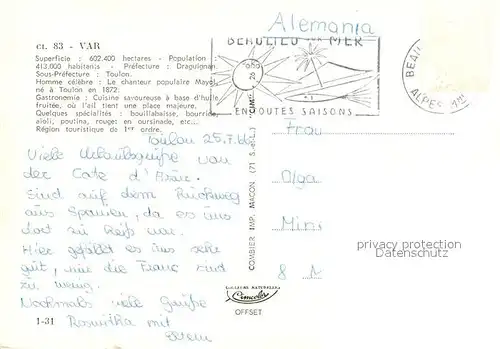 Alemania
Ct. 83 - VAR
Superficie : 602.400 hectares - Population :
413.000 habitants - Préfecture : Draguignan.
Sous-Préfecture : Toulon.
Homme célèbre : Le chanteur populaire Mayol
né à Toulon en 1872.
Gastronomie : Cuisine savoureuse à base d'huile
fruitée, où l'ail tient une place majeure.
Quelques spécialités : bouillabaisse, bourride,
aïoli, poutina, rouget en oursinade, etc...
Région touristique du 1er ordre.
BEAULIEU SUR MER
EN TOUTES SAISONS
BEAU
ALPES
Toulon 25.7.66
Viele Urlaubsgrüße von
der Cote d'Azur.
Sind auf dem Rückweg
aus Spanien, da es uns
dort zu heiß war.
Hier gefällt es uns sehr
gut, nur die Francs sind
zu wenig.
Nochmals viele Grüße
Roswitha mit
1-31
COMBIER IMP. MACON (71 S.-&-L.)
Combier
OFFSET
Frau
Olga
Min
8 M
privacy protection
Datenschutz